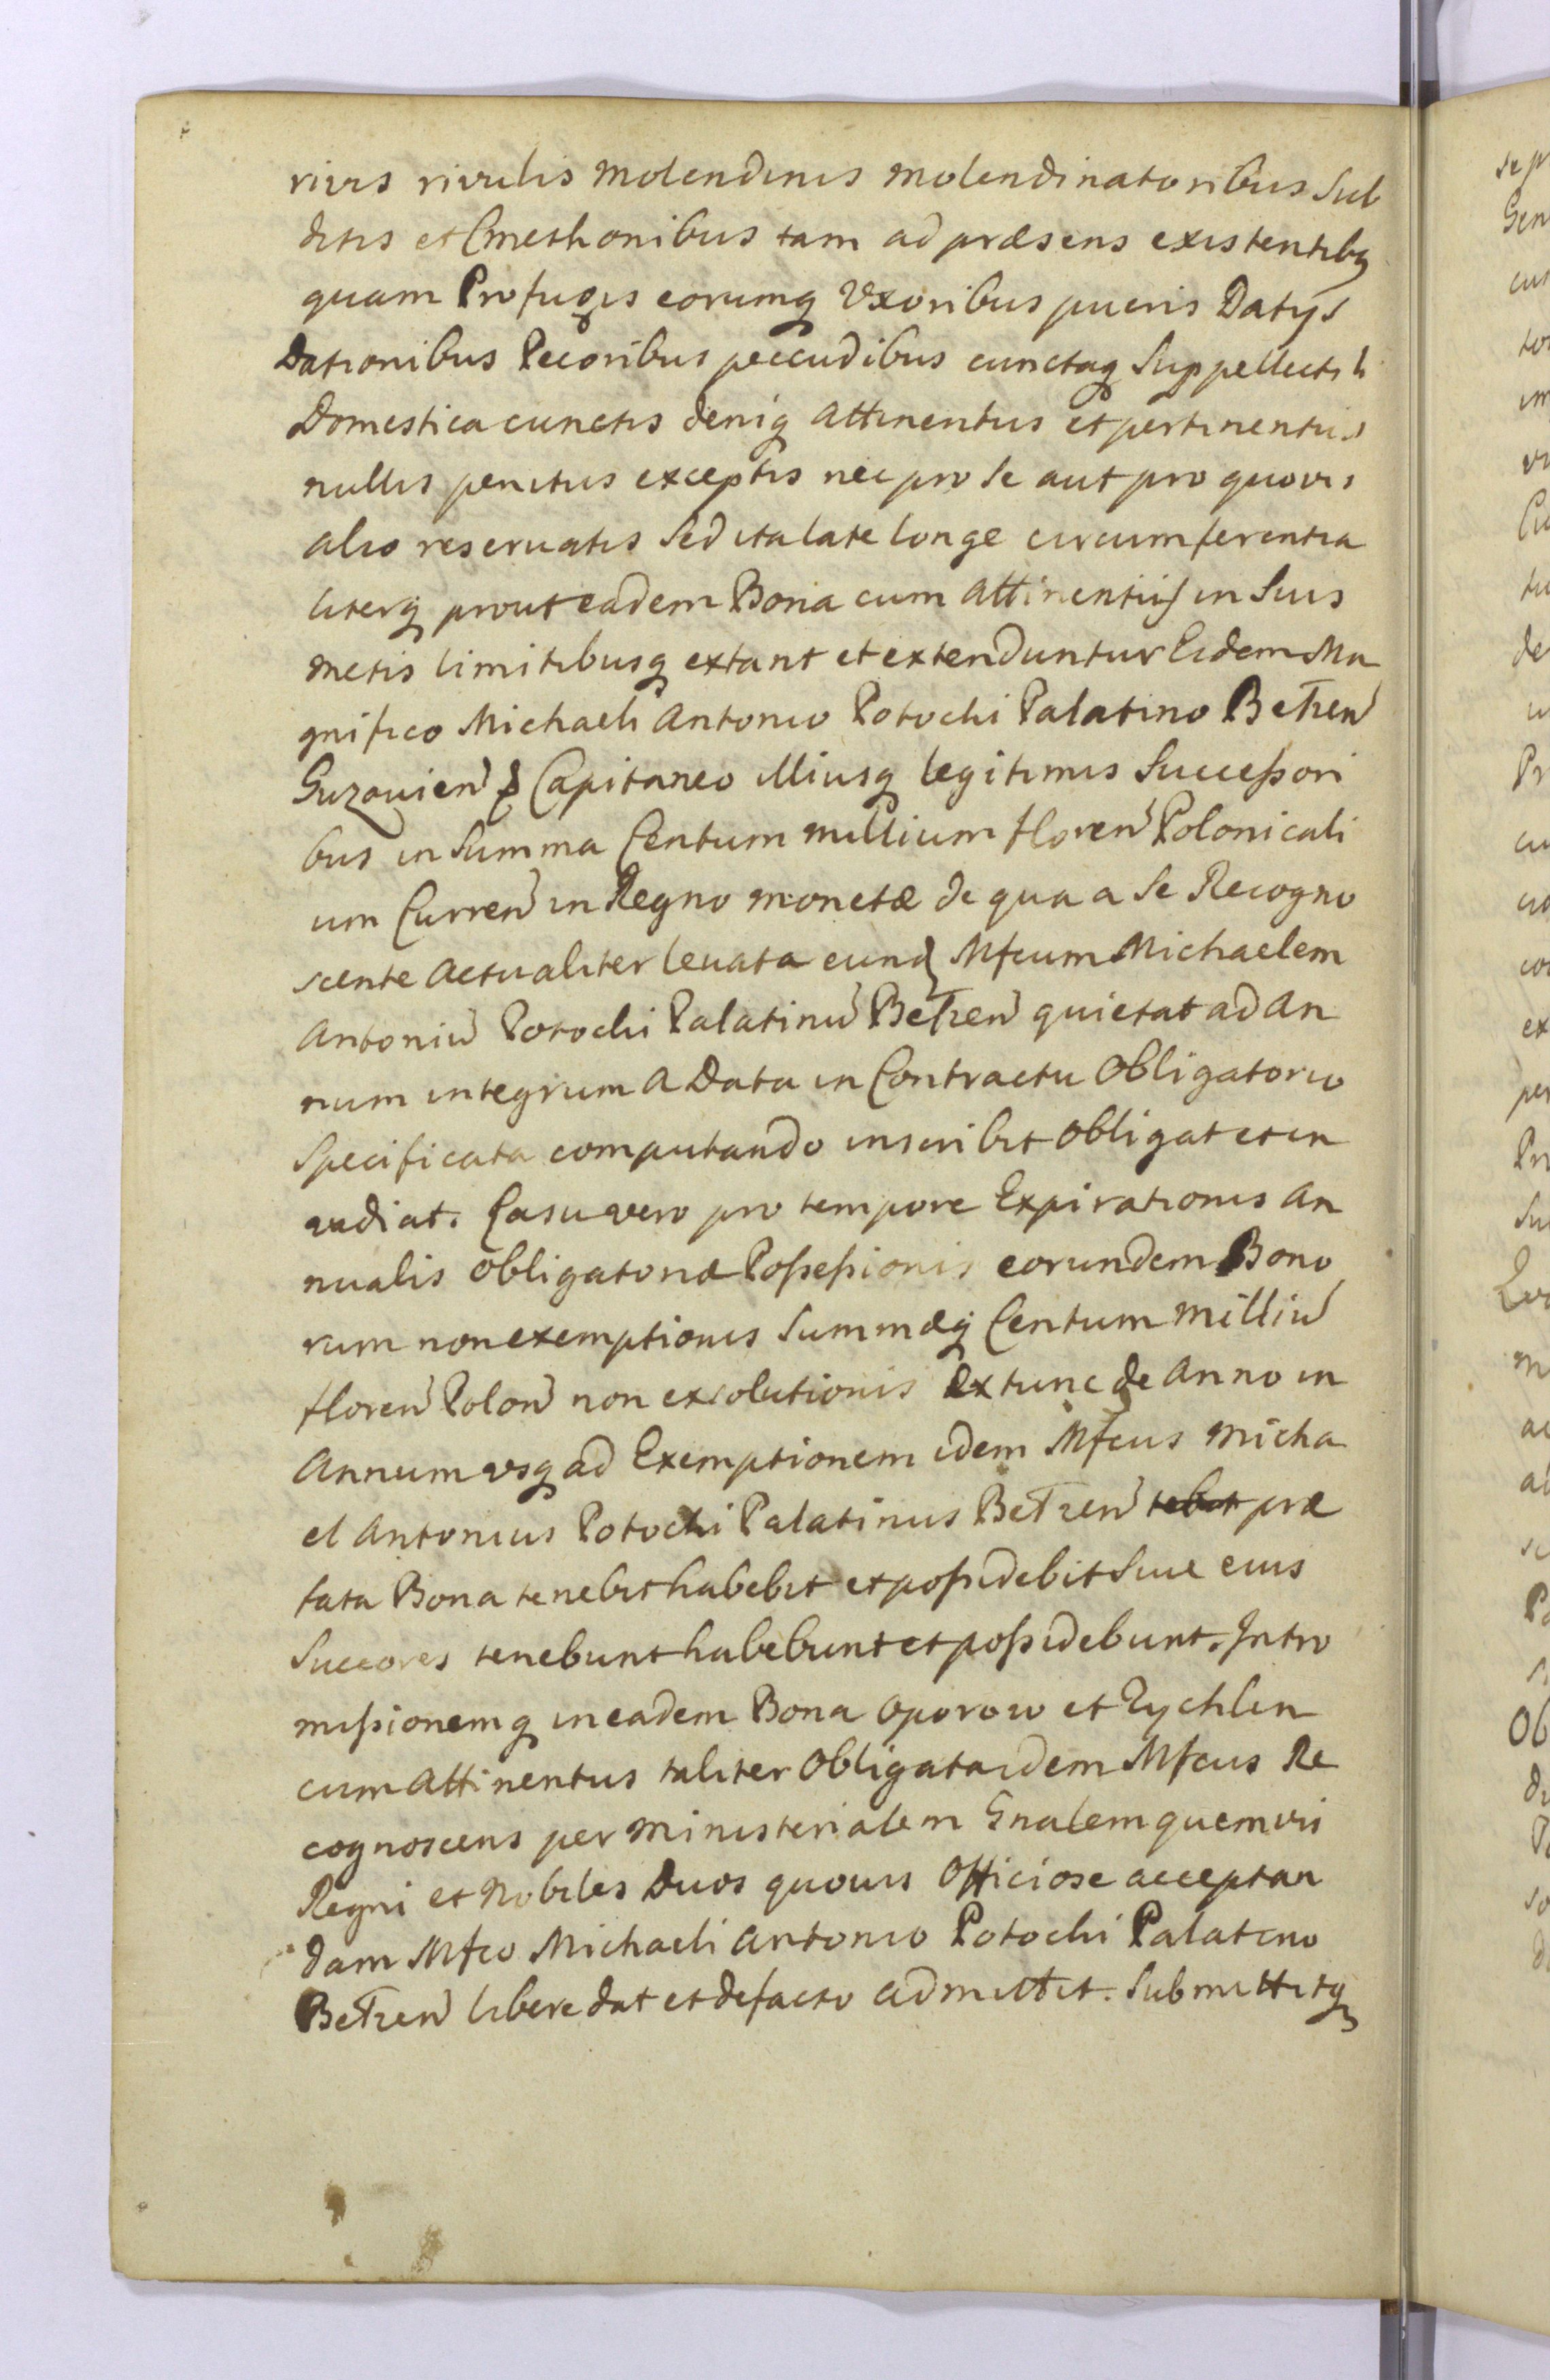 rivis rivulis Molendinis Molendinatoribus Sub
ditis et Cmethonibus tam ad præsens existentibq
quam Profugis eorumq Vxoribus pueris Datys
Dationibus Pecoribus peccudibus cunctaq Suppellectili
Domestica cunctis deniq Attinentiis et pertinentiis
nullis penitus exceptis nec pro se aut pro quovis
alio reservatis Sed ita late longe circumferentia
literq prout eadem Bona cum Attinentiis in Suis
metis limitibusq extant et extenduntur Eidem Ma
gnifico Michaeli Antonio Potocki Palatino Betzen
Guzovien Capitaneo illiusq legitimis Successori
bus in Summa Centum Millium floren Polonicali
um Curren in Regno monetæ de qua a se Recogno
scente Actualiter levata eund Mfcum Michaelem
Antoniu Potocki Palatinu Betzen quietat ad An
num integrum A Data in Contractu Obligatorio
Specificata computando inscribit Obligat et in
vadiat. Casu vero pro tempore Expirationis An
nualis Obligatoriæ Possessionis eorundem Bono
rum non exemptionis Summæq Centum Milliu
floren Polon non exsolutionis Extunc de Anno in
Annum usq ad Exemptionem idem Mfcus Micha
el Antonius Potocki Palatinus Betzen tebit præ
tata Bona tenebit habebit et possidebit Sive eius
Succores tenebunt habebunt et possidebunt. Intro
missionemq in eadem Bona Oporow et Rychlin
cum Attinentiis taliter Obligata idem Mfcus Re
cognoscens per Ministerialem Gnalem quemvis
Regni et Nobiles Duos quovis Officiose acceptan
dam Mfco Michaeli Antonio Potocki Palatino
Betzen libere dat et de facto admittit. Submittitq